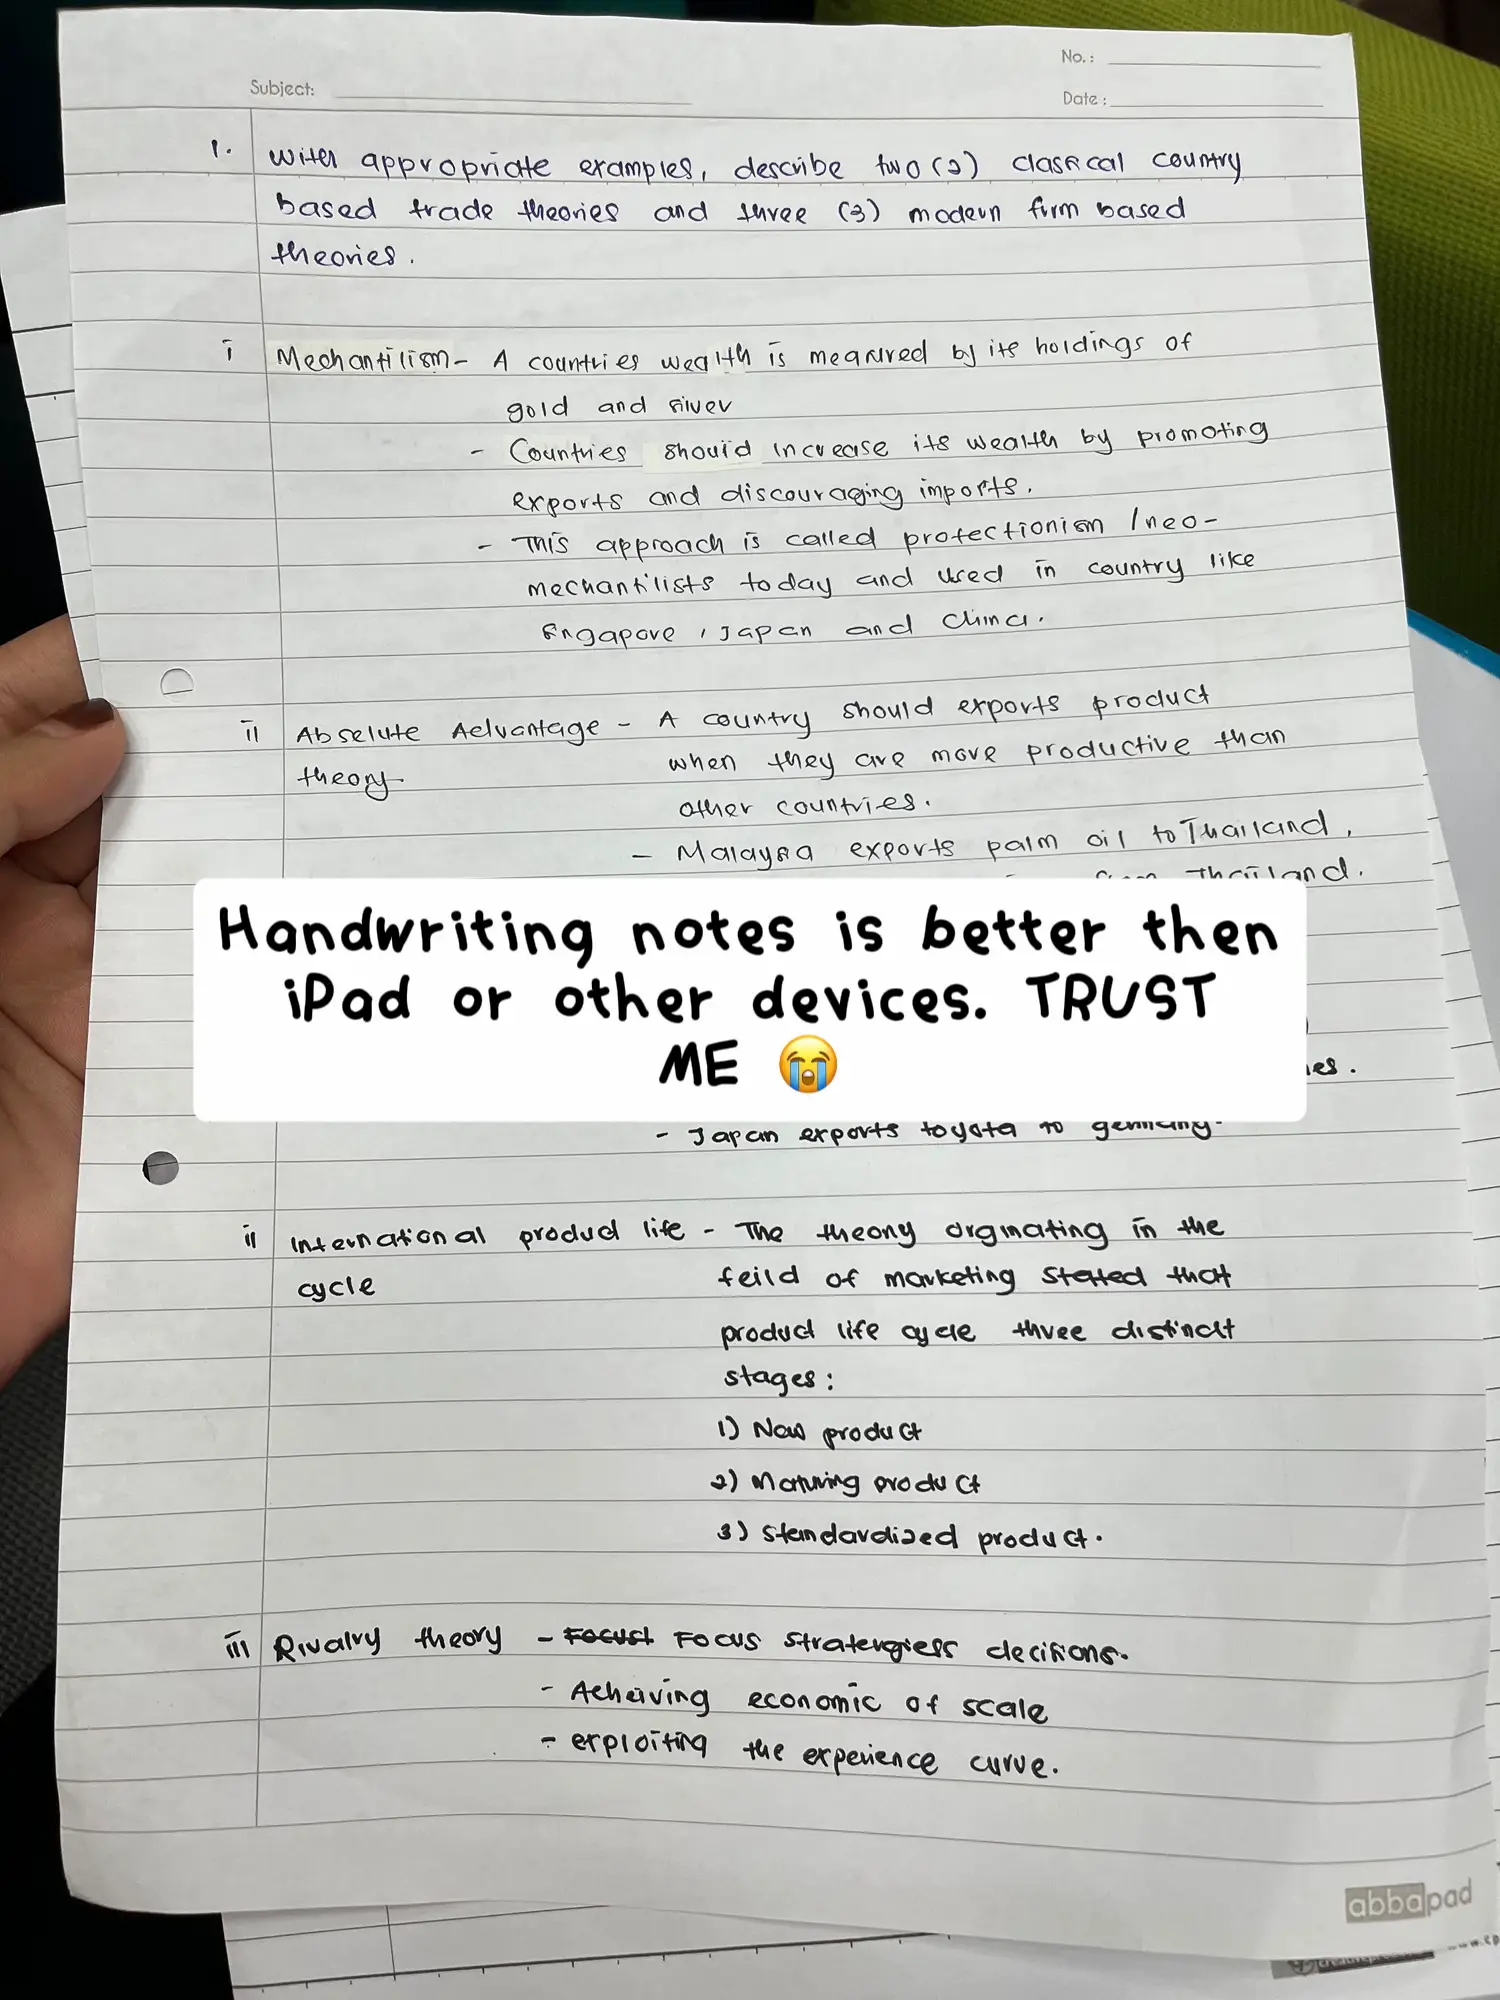 No. :
Subject:
Date :
1. With appropriate examples, describe two (2) classical country
based trade theories and three (3) modern firm based
theories.
i Mechantilism - A countries wealth is measured by its holdings of
gold and silver
- Countries should increase its wealth by promoting
exports and discouraging imports.
- This approach is called protectionism / neo-
mechantilists today and used in country like
Singapore, Japan and China.
ii Absolute Advantage - A country should exports product
theory. when they are more productive than
other countries.
- Malaysia exports palm oil to Thailand,
from Thailand.
Handwriting notes is better then
iPad or other devices. TRUST
ME 😭
- Japan exports toyota to germany.
ii International product life - The theory orginating in the
cycle feild of marketing stated that
product life cycle three distinct
stages:
1) New product
2) Maturing product
3) standardized product.
iii Rivalry theory - Focust Focus stratergiess decisions.
- Acheiving economic of scale
- exploiting the experience curve.
abbapad